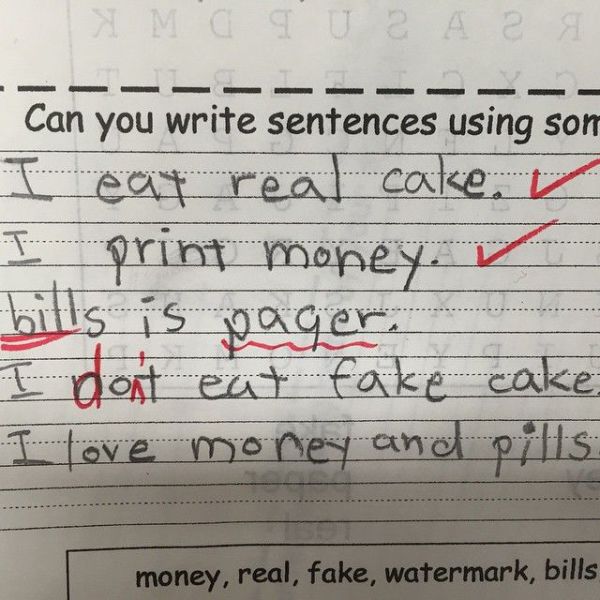 Can you write sentences using som
I eat real cake.
I print money.
bills is pager.
I don't eat fake cake.
I love money and pills.
money, real, fake, watermark, bills